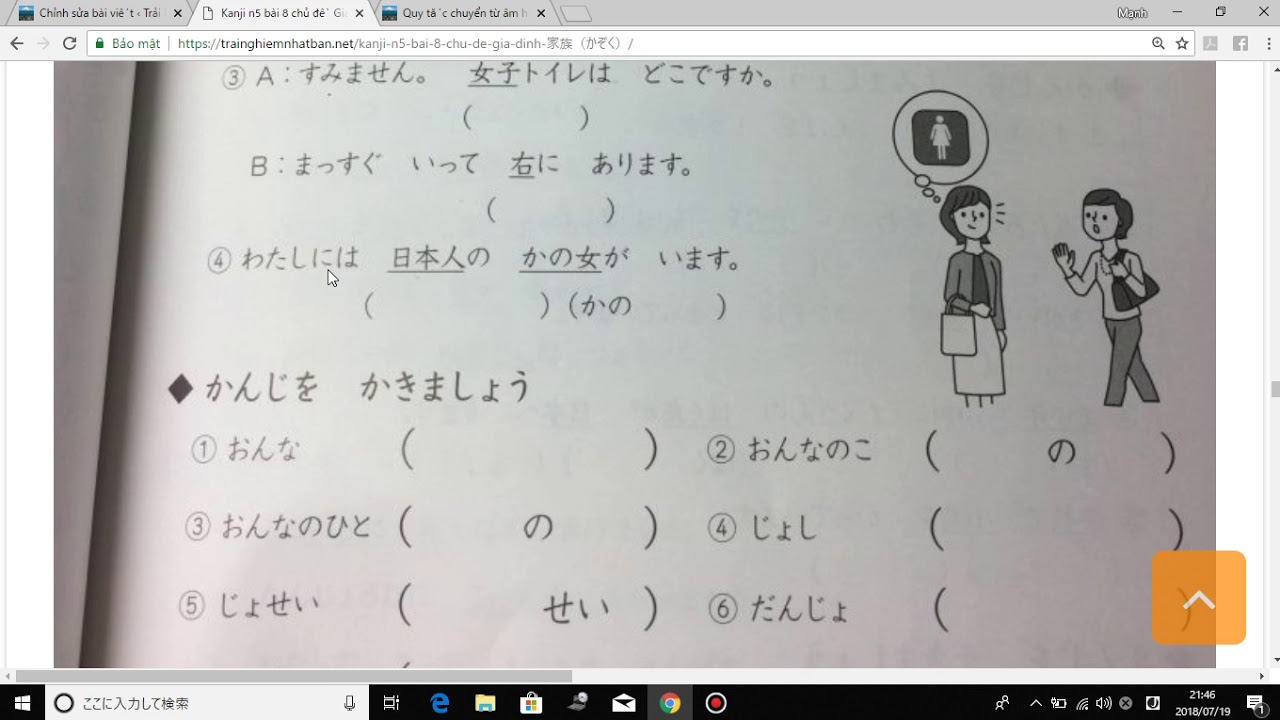 Chỉnh sửa bài viết ‹ Trải
Kanji n5 bài 8 chủ đề Gi
Quy tắc chuyển từ âm h
Mạnh
Bảo mật
https://trainghiemnhatban.net/kanji-n5-bai-8-chu-de-gia-dinh-家族（かぞく）/
③ A：すみません。 女子トイレは どこですか。
( )
B：まっすぐ いって 右に あります。
( )
④ わたしには 日本人の かの女が います。
( ) (かの )
◆ かんじを かきましょう
① おんな ( ) ② おんなのこ ( の )
③ おんなのひと ( の ) ④ じょし ( )
⑤ じょせい ( せい ) ⑥ だんじょ ( )
ここに入力して検索
21:46
2018/07/19